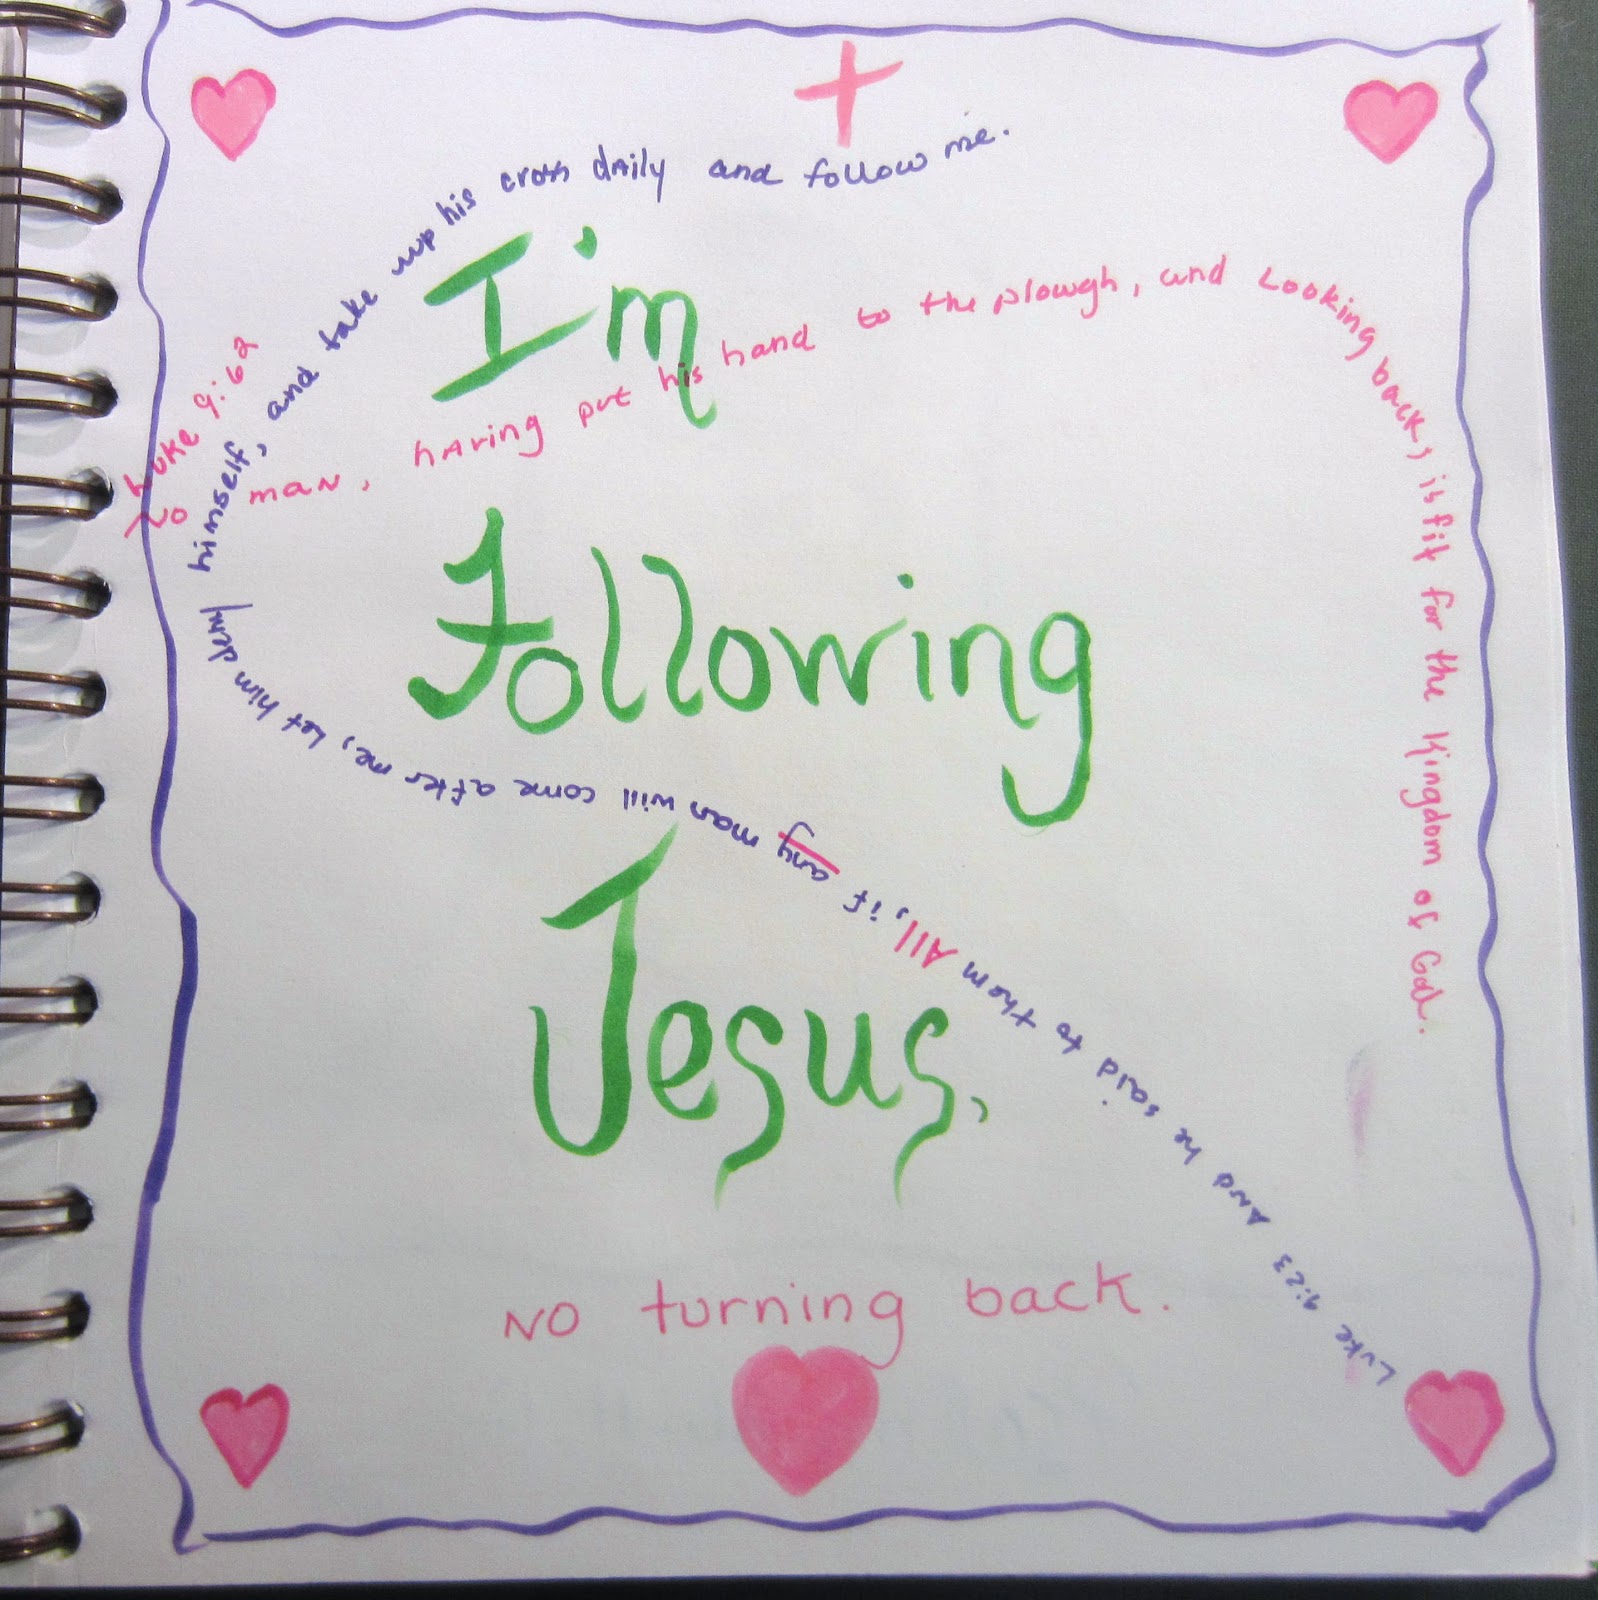 I'm
Following
Jesus,
NO turning back.
Luke 9:62
No man, having put his hand to the plough, and Looking back, is fit for the Kingdom of God.
Luke 9:23 And he said to them All, if any man will come after me, Let him deny himself, and take up his cross daily and follow me.